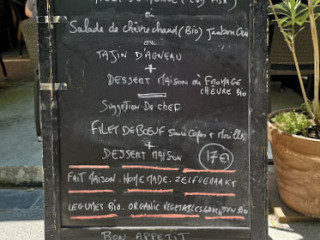 ou
Salade de Chèvre chaud (Bio) Jambon Cru
ou
TAJIN D'AGNEAU
+
DESSERT MAISON ou FROMAGE
CHÈVRE BIO
SUGGESTION DE CHEF
FILET DE BŒUF Sauce Cèpes + Morilles
+
DESSERT MAISON 17€
FAIT MAISON. HOMEMADE. ZELFGEMAAKT
LEGUMES BIO. ORGANIC VEGETABLES
BON APPETIT